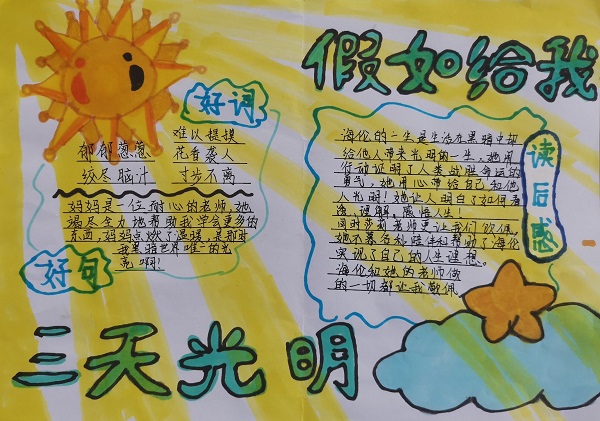 假如给我
三天光明
好词
难以提摸
郁郁葱葱 花香袭人
绞尽脑汁 寸步不离
妈妈是一位耐心的老师,她
竭尽全力地帮助我学会更多的
东西,妈妈点燃了温暖,是那时
我黑暗世界唯一的光
亮啊!
好句
读后感
海伦的一生是生活在黑暗中却
给他人带来光明的一生,她用
行动证明了人类战胜命运的
勇气,她用心带给自己和他
人光明!她让人明白了如何看
待,理解,感悟人生!
同时莎莉老师更让我们钦佩,
她不慕名利陪伴和帮助了海伦
实现了自己的人生理想。
海伦和她的老师做
的一切都让我敬佩。